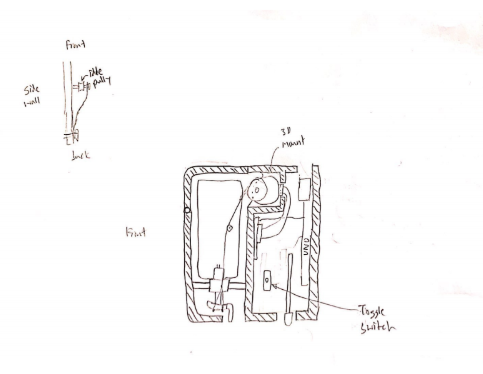 Front
side
wall
idle
pully
back
3D
mount
Front
UNO
Toggle
switch